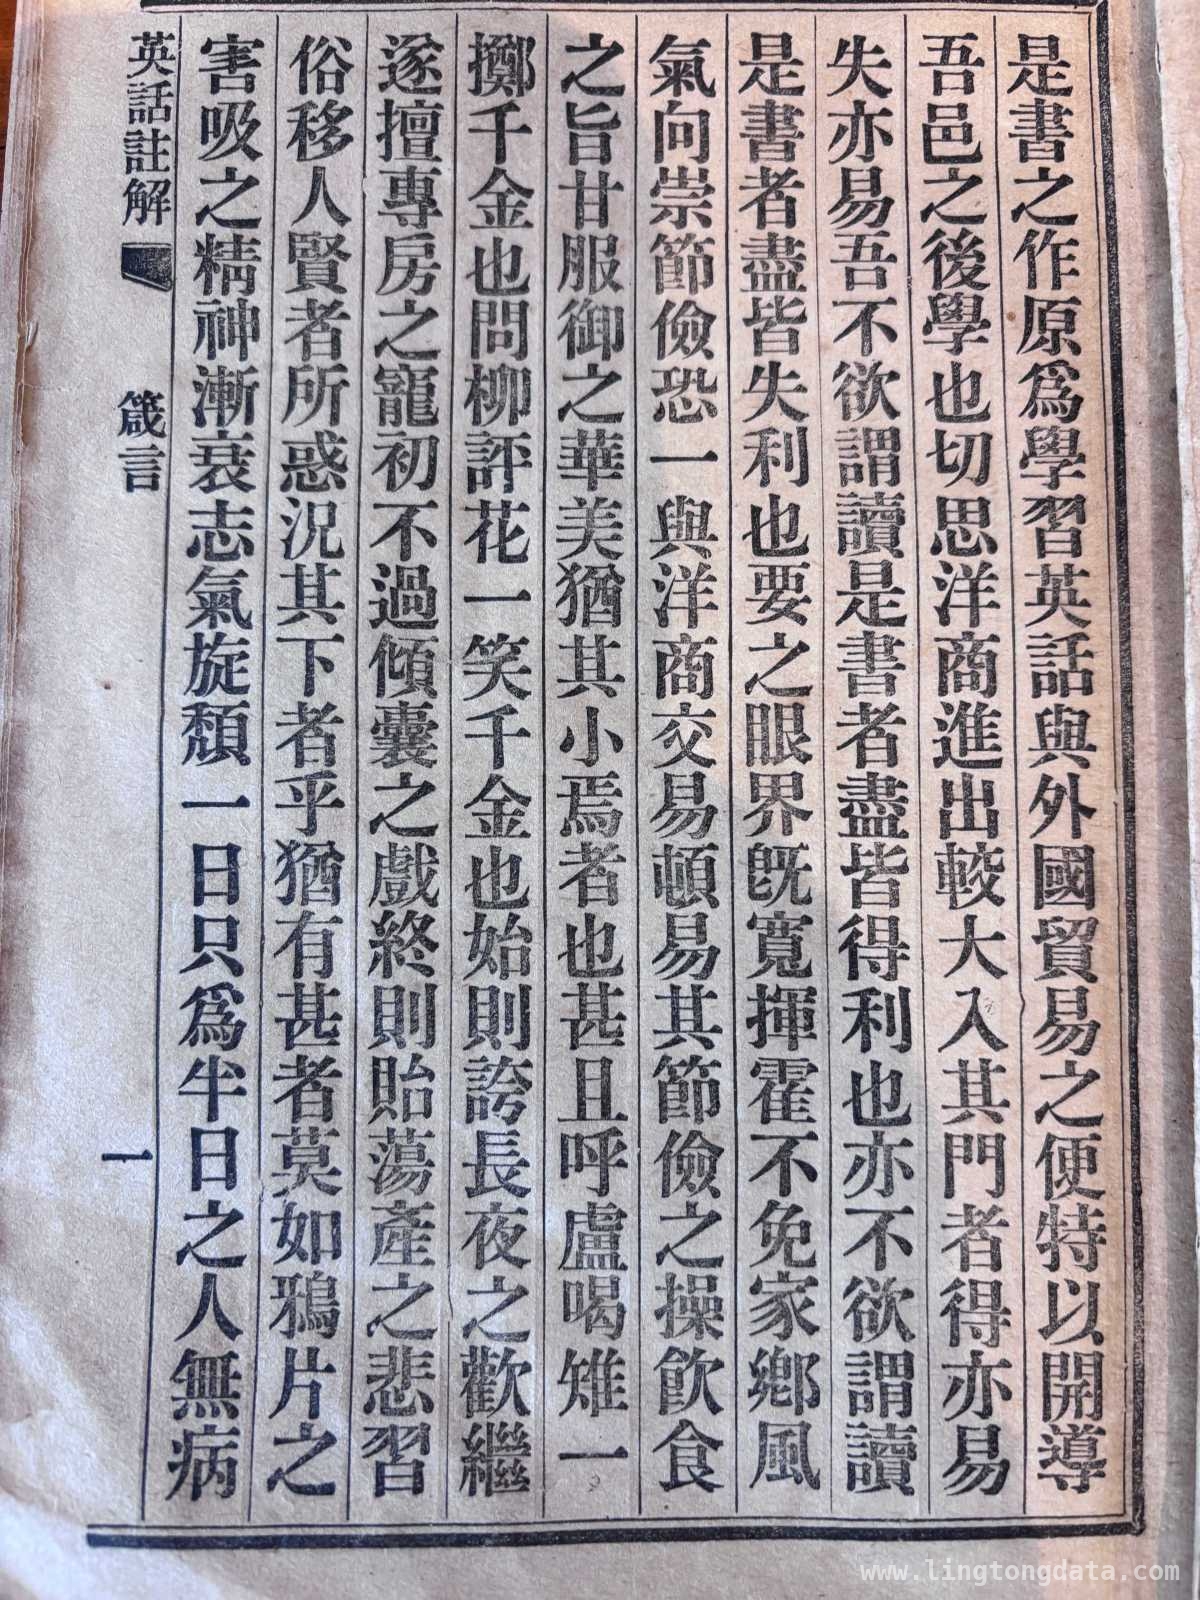 是書之作原爲學習英話與外國貿易之便特以開導
吾邑之後學也切思洋商進出較大入其門者得亦易
失亦易吾不欲謂讀是書者盡皆得利也亦不欲謂讀
是書者盡皆失利也要之眼界旣寬揮霍不免家鄉風
氣向崇節儉恐一與洋商交易頓易其節儉之操飲食
之旨甘服御之華美猶其小焉者也甚且呼盧喝雉一
擲千金也問柳評花一笑千金也始則誇長夜之歡繼
遂擅專房之寵初不過傾囊之戲終則貽蕩產之悲習
俗移人賢者所惑況其下者乎猶有甚者莫如鴉片之
害吸之精神漸衰志氣旋頹一日只爲半日之人無病
英話註解 箴言 一
www.lingtongdata.com